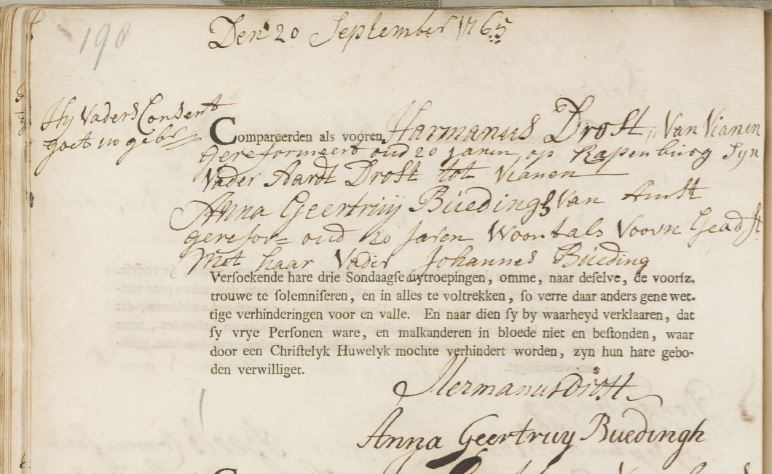 190
Den 20 September 1765
Hy vaders Consent
goet in gebr
Compareerden als vooren Harmanus Drost, van Vianen
gereformeert oud 20 Jaren, op Rapenburg syn
vader Aardt Drost tot vianen
Anna Geertruij Büedingh van Amst
gerefor= oud 20 Jaren woont als Voorn Geadst
Met haar Vader Johannes Büeding
Versoekende hare drie Sondaagse uytroepingen, omme, naar deselve, de voorsz.
trouwe te solemniseren, en in alles te voltrekken, so verre daar anders gene wet-
tige verhinderingen voor en valle. En naar dien sy by waarheyd verklaaren, dat
sy vrye Personen ware, en malkanderen in bloede niet en bestonden, waar
door een Christelyk Huwelyk mochte verhindert worden, zyn hun hare gebo-
den verwilliget.
Hermanus Drost
Anna Geertruy Buedingh